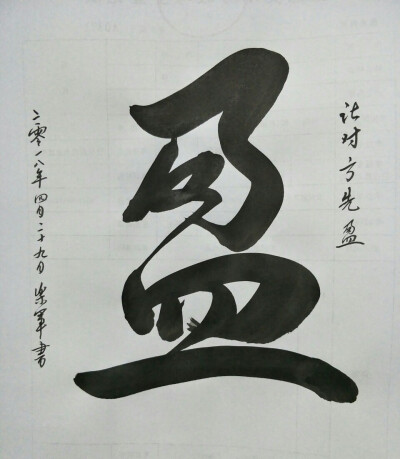 让对方先盈
盈
二零一八年四月二十九日柴軍書